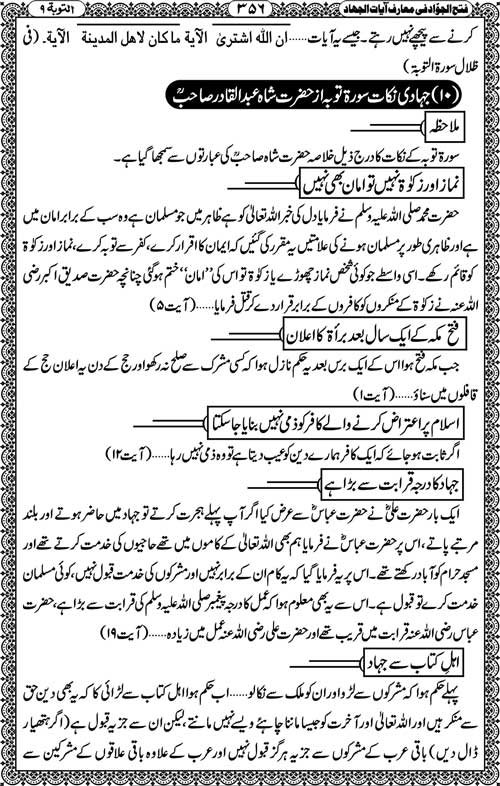 فتح الجوّاد فی معارف آیات الجهاد ۳۵۶ التوبة ۹
کرنے سے پیچھے نہیں رہتے۔ جیسے یہ آیات......ان اللّٰہ اشتریٰ الآیة ما کان لاهل المدینة الآیة۔ (فی
ظلال سورۃ التوبۃ)
(۱۰) جہادی نکات سورۃ توبہ از حضرت شاہ عبدالقادر صاحبؒ
ملاحظہ
سورۃ توبہ کے نکات کا درج ذیل خلاصہ حضرت شاہ صاحبؒ کی عبارتوں سے سمجھا گیا ہے۔
نماز اور زکوٰۃ نہیں تو امان بھی نہیں
حضرت محمد صلی اللہ علیہ وسلم نے فرمایا دل کی خبر اللہ تعالیٰ کو ہے ظاہر میں جو مسلمان ہے وہ سب کے برابر امان میں
ہے اور ظاہری طور پر مسلمان ہونے کی علامتیں یہ مقرر کی گئیں کہ ایمان کا اقرار کرے، کفر سے توبہ کرے، نماز اور زکوٰۃ
کو قائم رکھے۔ اسی واسطے جو کوئی شخص نماز چھوڑے یا زکوٰۃ تو اس کی ”امان“ ختم ہوگئی چنانچہ حضرت صدیق اکبر رضی
اللہ عنہ نے زکوٰۃ کے منکروں کو کافروں کے برابر قرار دے کر قتل فرمایا......(آیت ۵)
فتح مکہ کے ایک سال بعد برأۃ کا اعلان
جب مکہ فتح ہوا اس کے ایک برس بعد یہ حکم نازل ہوا کہ کسی مشرک سے صلح نہ رکھو اور حج کے دن یہ اعلان حج کے
قافلوں میں سناؤ......(آیت ۱)
اسلام پر اعتراض کرنے والے کافر کو ذمی نہیں بنایا جاسکتا
اگر ثابت ہو جائے کہ ایک کافر ہمارے دین کو عیب دیتا ہے تو وہ ذمی نہیں رہا......(آیت ۱۲)
جہاد کا درجہ قرابت سے بڑا ہے
ایک بار حضرت علیؓ نے حضرت عباسؓ سے عرض کیا اگر آپ پہلے ہجرت کرتے تو جہاد میں حاضر ہوتے اور بلند
مرتبے پاتے، اس پر حضرت عباسؓ نے فرمایا ہم بھی اللہ تعالیٰ کے کاموں میں تھے حاجیوں کی خدمت کرتے تھے اور
مسجد حرام کو آباد رکھتے تھے۔ اس پر یہ فرمایا گیا کہ یہ کام ان کے برابر نہیں اور مشرکوں کی خدمت قبول نہیں، کوئی مسلمان
خدمت کرے تو قبول ہے۔ اس سے یہ بھی معلوم ہوا کہ عمل کا درجہ پیغمبر صلی اللہ علیہ وسلم کی قرابت سے بڑا ہے، حضرت
عباس رضی اللہ عنہ قرابت میں قریب تھے اور حضرت علی رضی اللہ عنہ عمل میں زیادہ......(آیت ۱۹)
اہل کتاب سے جہاد
پہلے حکم ہوا کہ مشرکوں سے لڑو اور ان کو ملک سے نکالو......اب حکم ہوا اہل کتاب سے لڑائی کا کہ یہ بھی دین حق
سے منکر ہیں اور اللہ تعالیٰ اور آخرت کو جیسا ماننا چاہئے ویسے نہیں مانتے، لیکن ان سے جزیہ قبول ہے (اگر ہتھیار
ڈال دیں) باقی عرب کے مشرکوں سے جزیہ ہرگز قبول نہیں اور عرب کے علاوہ باقی علاقوں کے مشرکین سے